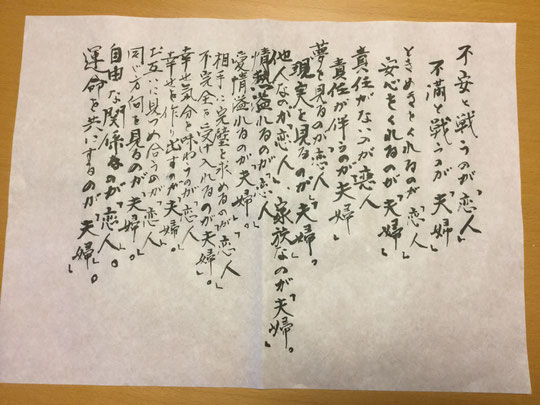 不安と戦うのが「恋人」
不満と戦うのが「夫婦」
ときめきをくれるのが「恋人」
安心をくれるのが「夫婦」
責任がないのが「恋人
責任が伴うのが「夫婦」
夢を見るのが「恋人」
現実を見るのが「夫婦」。
他人なのが「恋人」、家族なのが「夫婦。
情熱溢れるのが「恋人
愛情溢れるのが「夫婦」。
相手に完璧を求めるのが「恋人」
不完全を受け入れるのが「夫婦」。
幸せ気分を味わうのが「恋人」
幸せを作り出すのが「夫婦」。
お互いに見つめ合うのが「恋人
同じ方向を見るのが「夫婦」。
自由な関係なのが「恋人」。
運命を共にするのが「夫婦」。